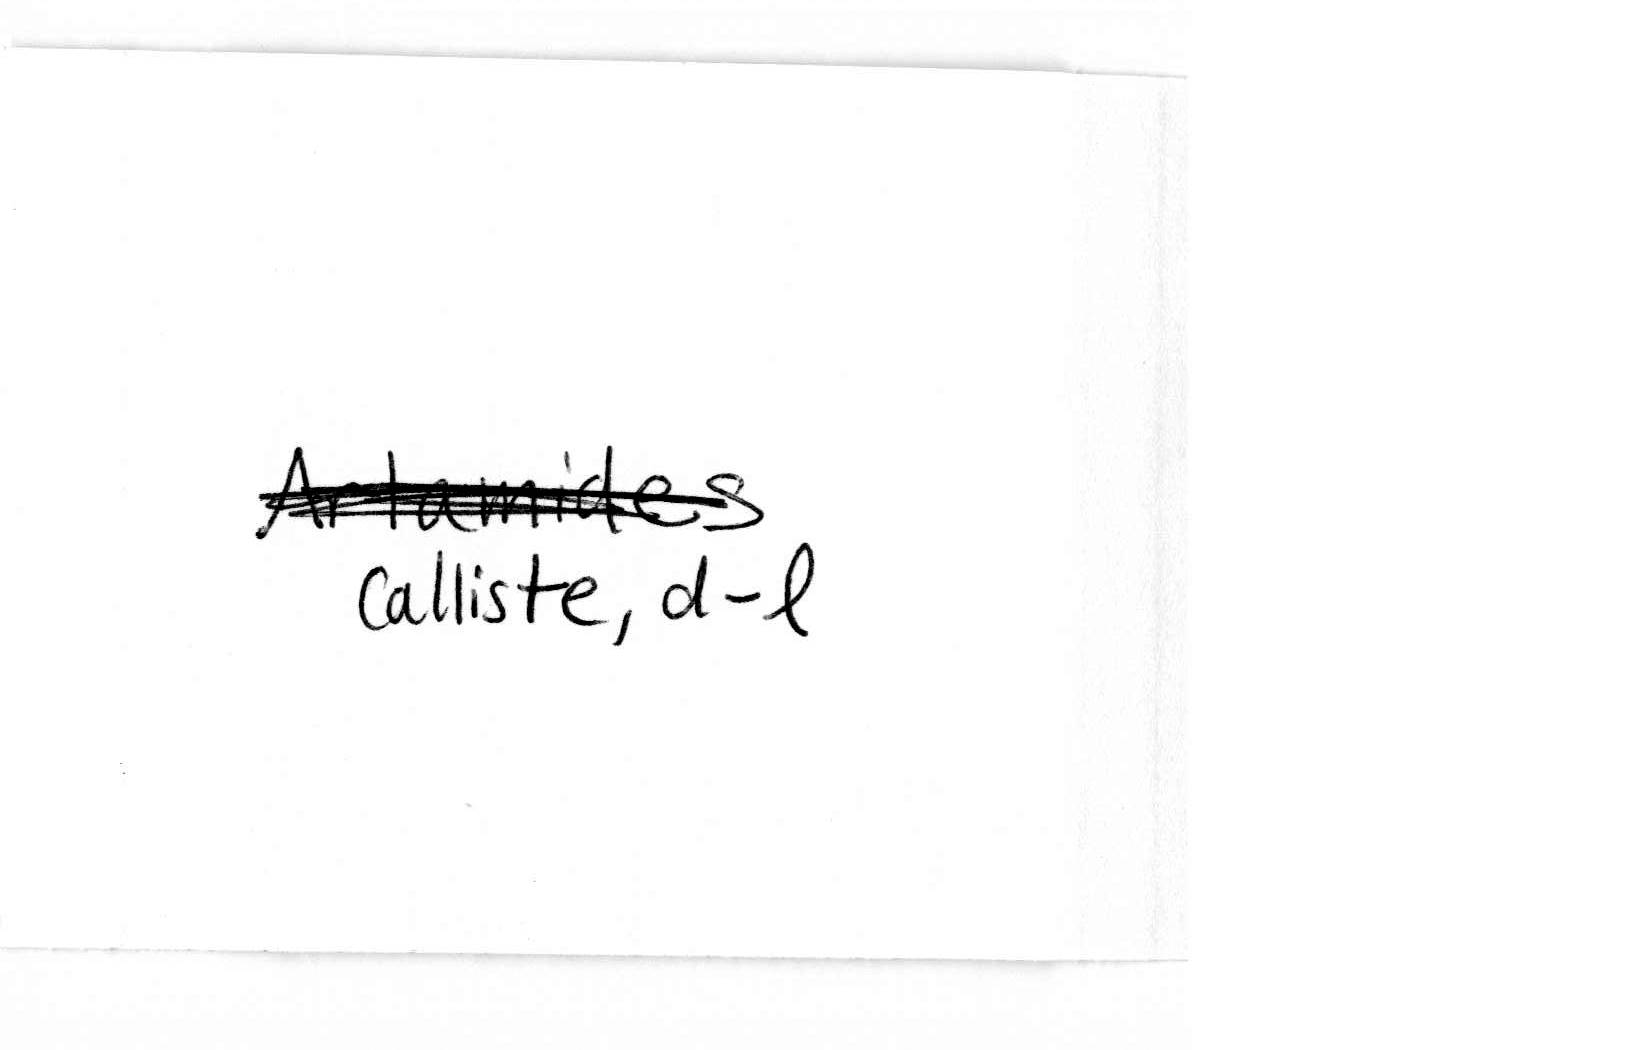 Artamides
Calliste, d-l